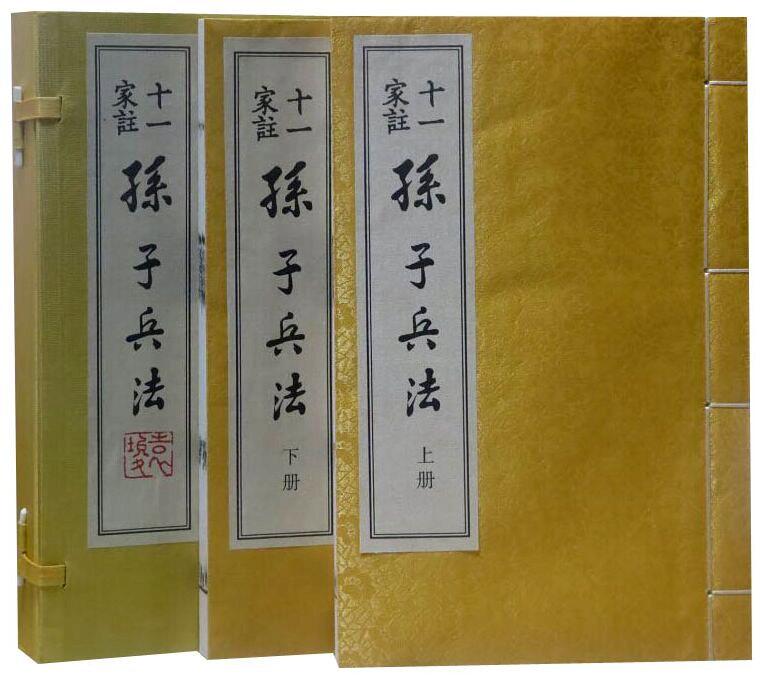 十一
家註
孫子兵法
十一
家註
孫子兵法
下册
十一
家註
孫子兵法
上册